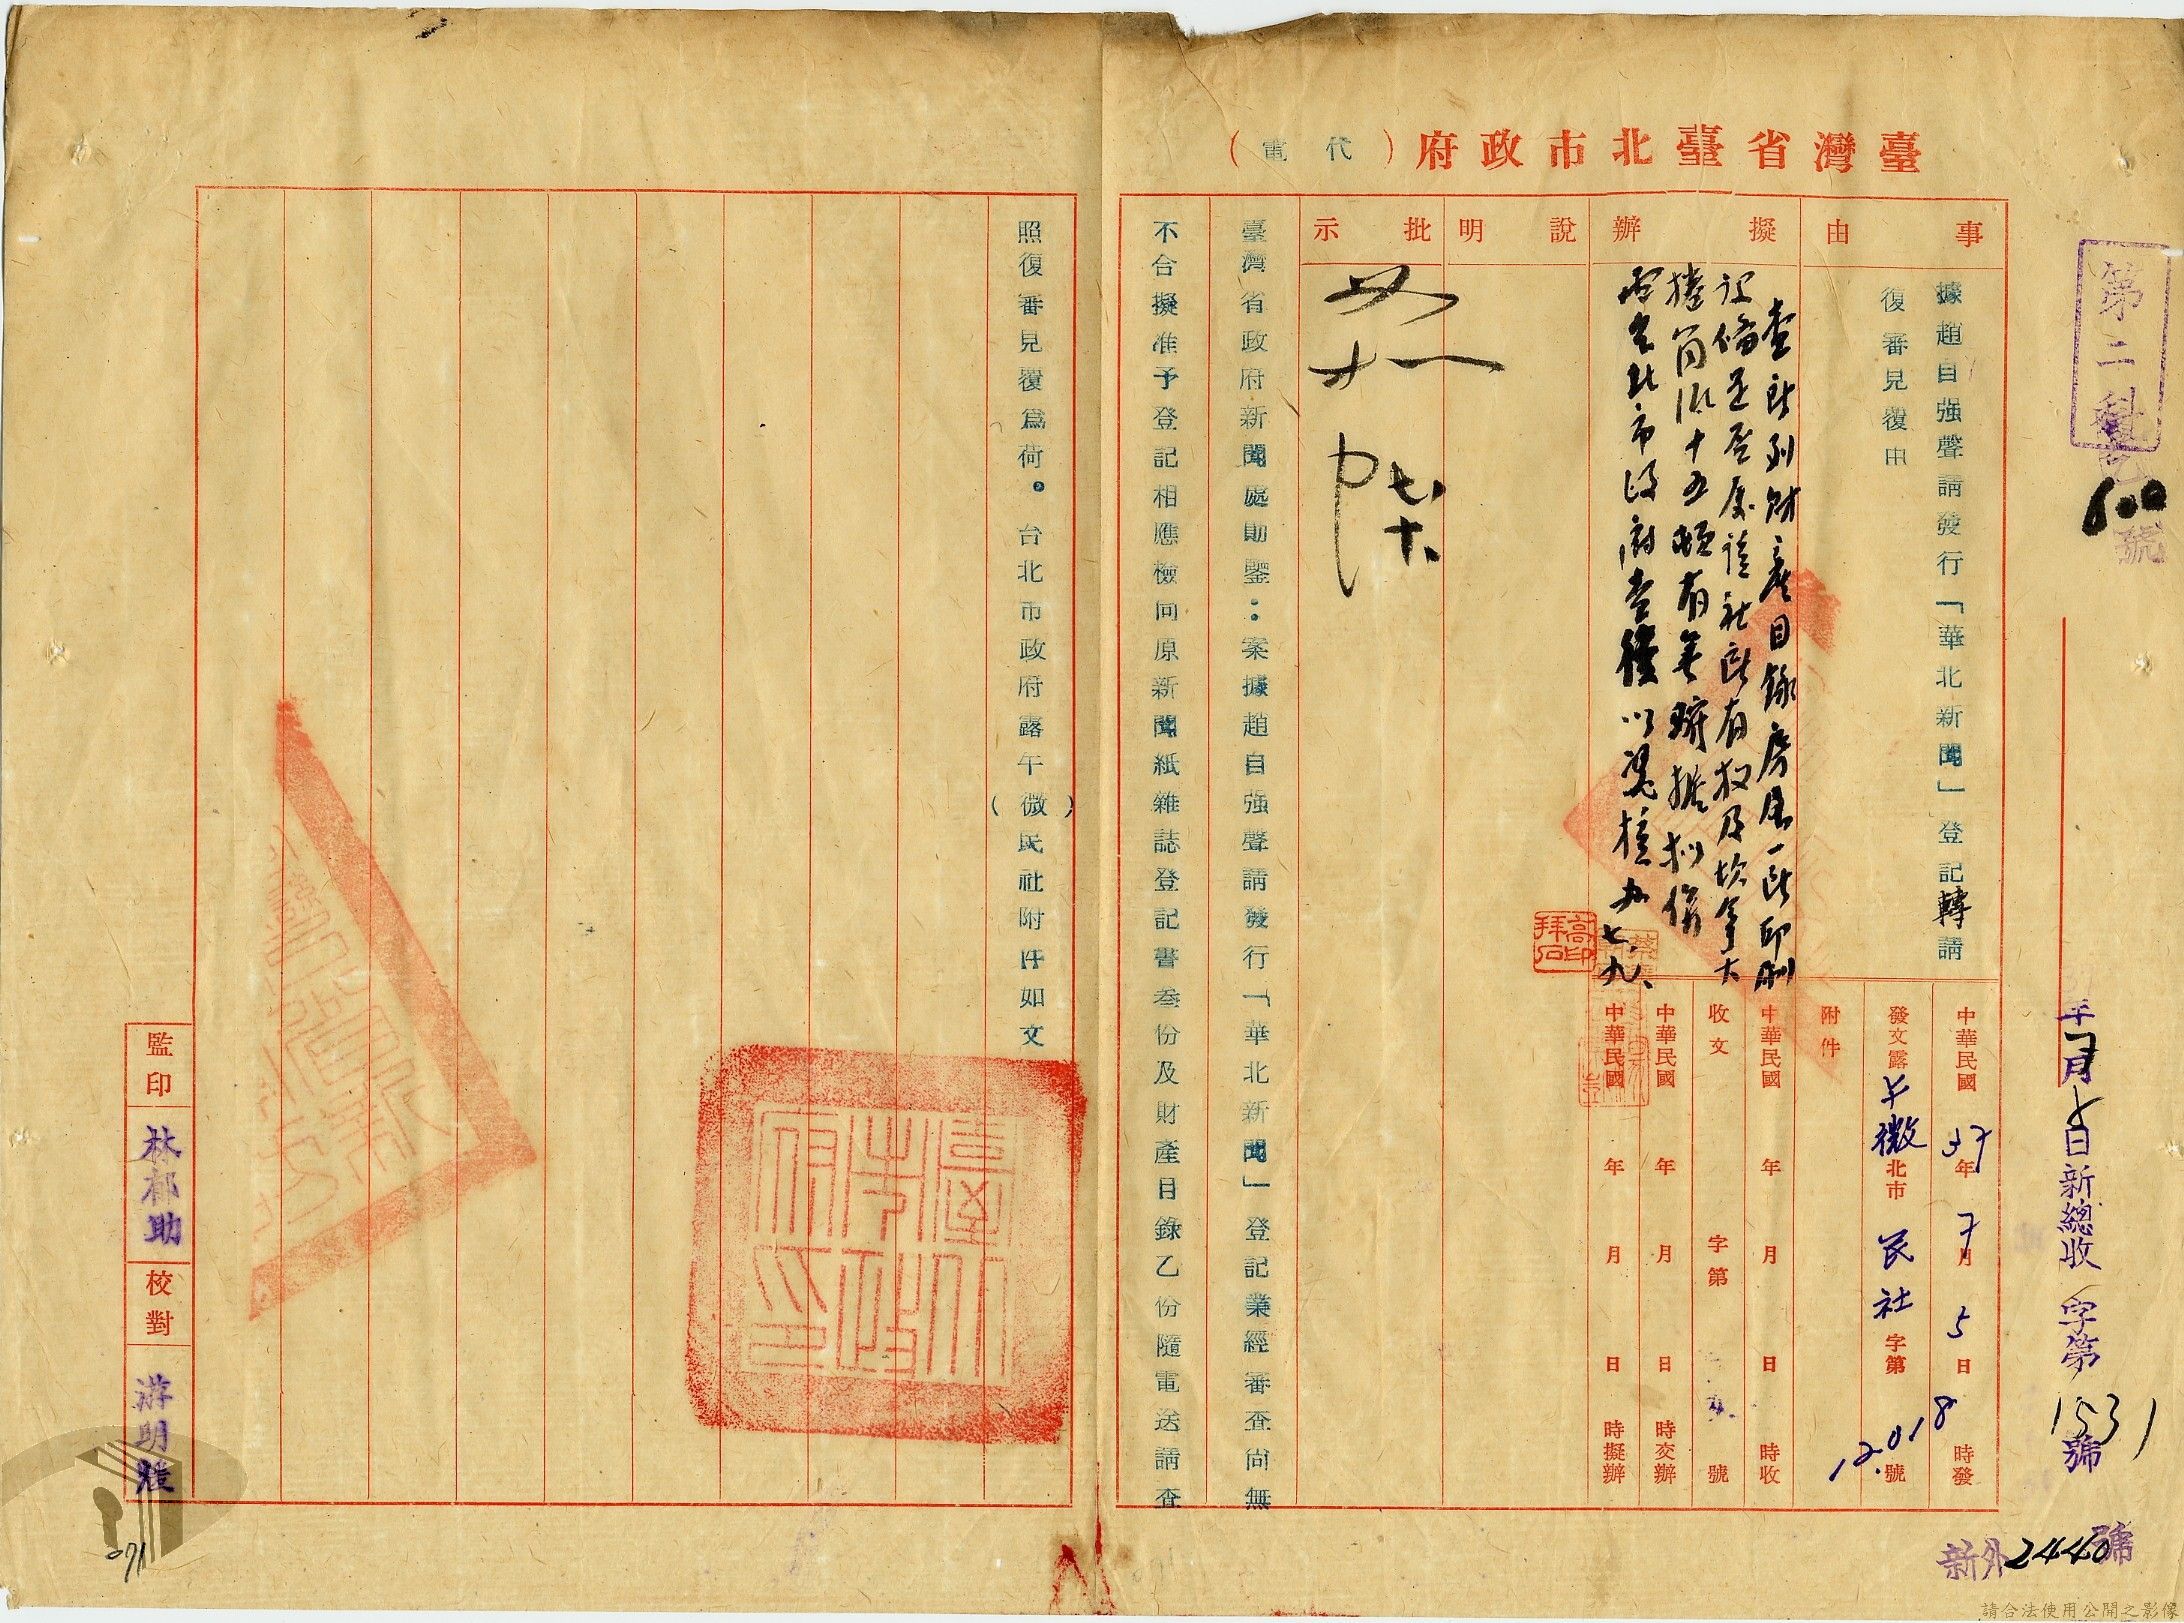 臺灣省臺北市政府（代電）
第二科
600號
年 月 日新總收字第1531號
事由
據趙自强聲請發行「華北新聞」登記轉請
復審見復由
擬辦
查所列財產目錄房屋一所印刷
設備是否屬該社所有权及坎拿大
捲筒紙十五噸有無確據擬復
電台北市政府查復以憑核办 七、九、
說明
批示
如
七、十、
中華民國37年7月5日 時發
發文露午微北市民社字第12018號
附件
中華民國 年 月 日 時收
收文 字第 號
中華民國 年 月 日 時交辦
中華民國 年 月 日 時擬辦
高印拜石
臺灣省政府新聞處勛鑒：案據趙自强聲請發行「華北新聞」登記業經審查尚無
不合擬准予登記相應檢同原新聞紙雜誌登記書叁份及財產目錄乙份隨電送請查
照復審見覆為荷。台北市政府露午（微）民社附件如文
監印
校對
新外2440號
071
請合法使用公開之影像